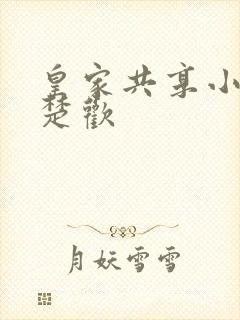 皇家共享小
楚歡
月妖雪雪